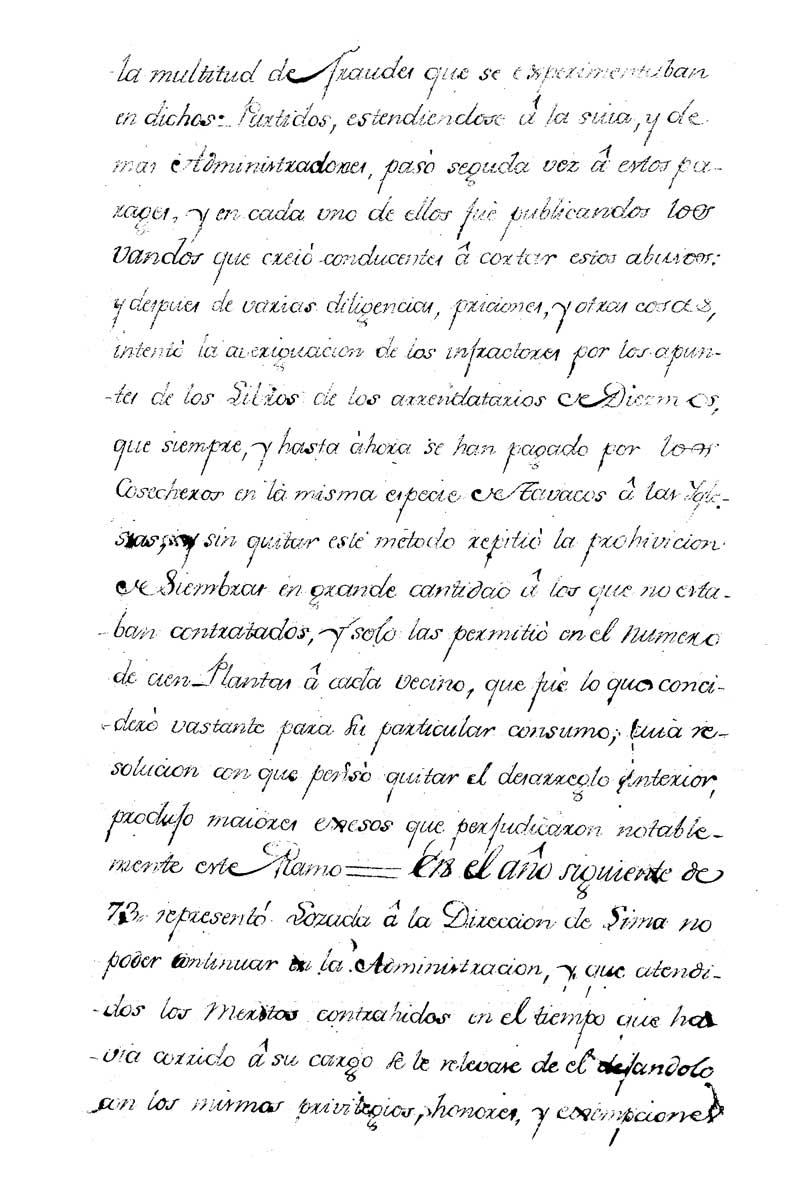 la multitud de fraudes que se experimentaban
en dichos Partidos, estendiendose â la suia, y de
mas Administradores, pasò seguda vez â estos pa-
rages, y en cada uno de ellos fuè publicandos los
vandos que creiò conducentes â cortar estos abusos:
y despues de varias diligencias, priciones, y otras cosas,
intentò la averiguacion de los infractores por los apun-
-tes de los Libros de los arrendatarios de Diezmos,
que siempre, y hasta àhora se han pagado por los
Cosecheros en là misma especie de Tavacos â las Ygle-
sias, y sin quitar este mètodo repitiò la prohivicion
de Siembras en grande cantidad â los que no esta-
-ban contratados, y solo las permitiò en el numero
de cien Plantas â cada vecino, que fuè lo que conci-
-derò vastante para su particular consumo; cuia re-
solucion con que pensò quitar el desarreglo ynterior,
produjo maiores exesos que perjudicaron notable-
mente este Ramo == En el año siguiente de
73 representò Lozada â la Direccion de Lima no
poder continuar en la Administracion, y que atendi-
-dos los Meritos contrahidos en el tiempo que ha
-via corrido â su cargo se le relevase de el dejandolo
con los mismos privilegios, honores, y exempciones